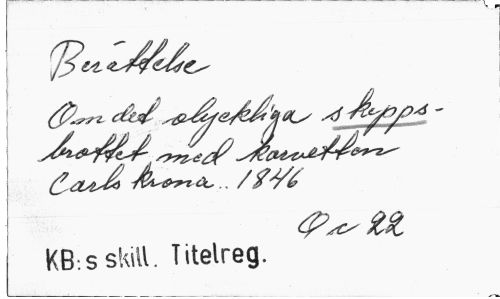 Berättelse
Om det olyckliga skepps-
brottet med korvetten
Carlskrona.. 1846
Oc 22
KB:s skill. Titelreg.